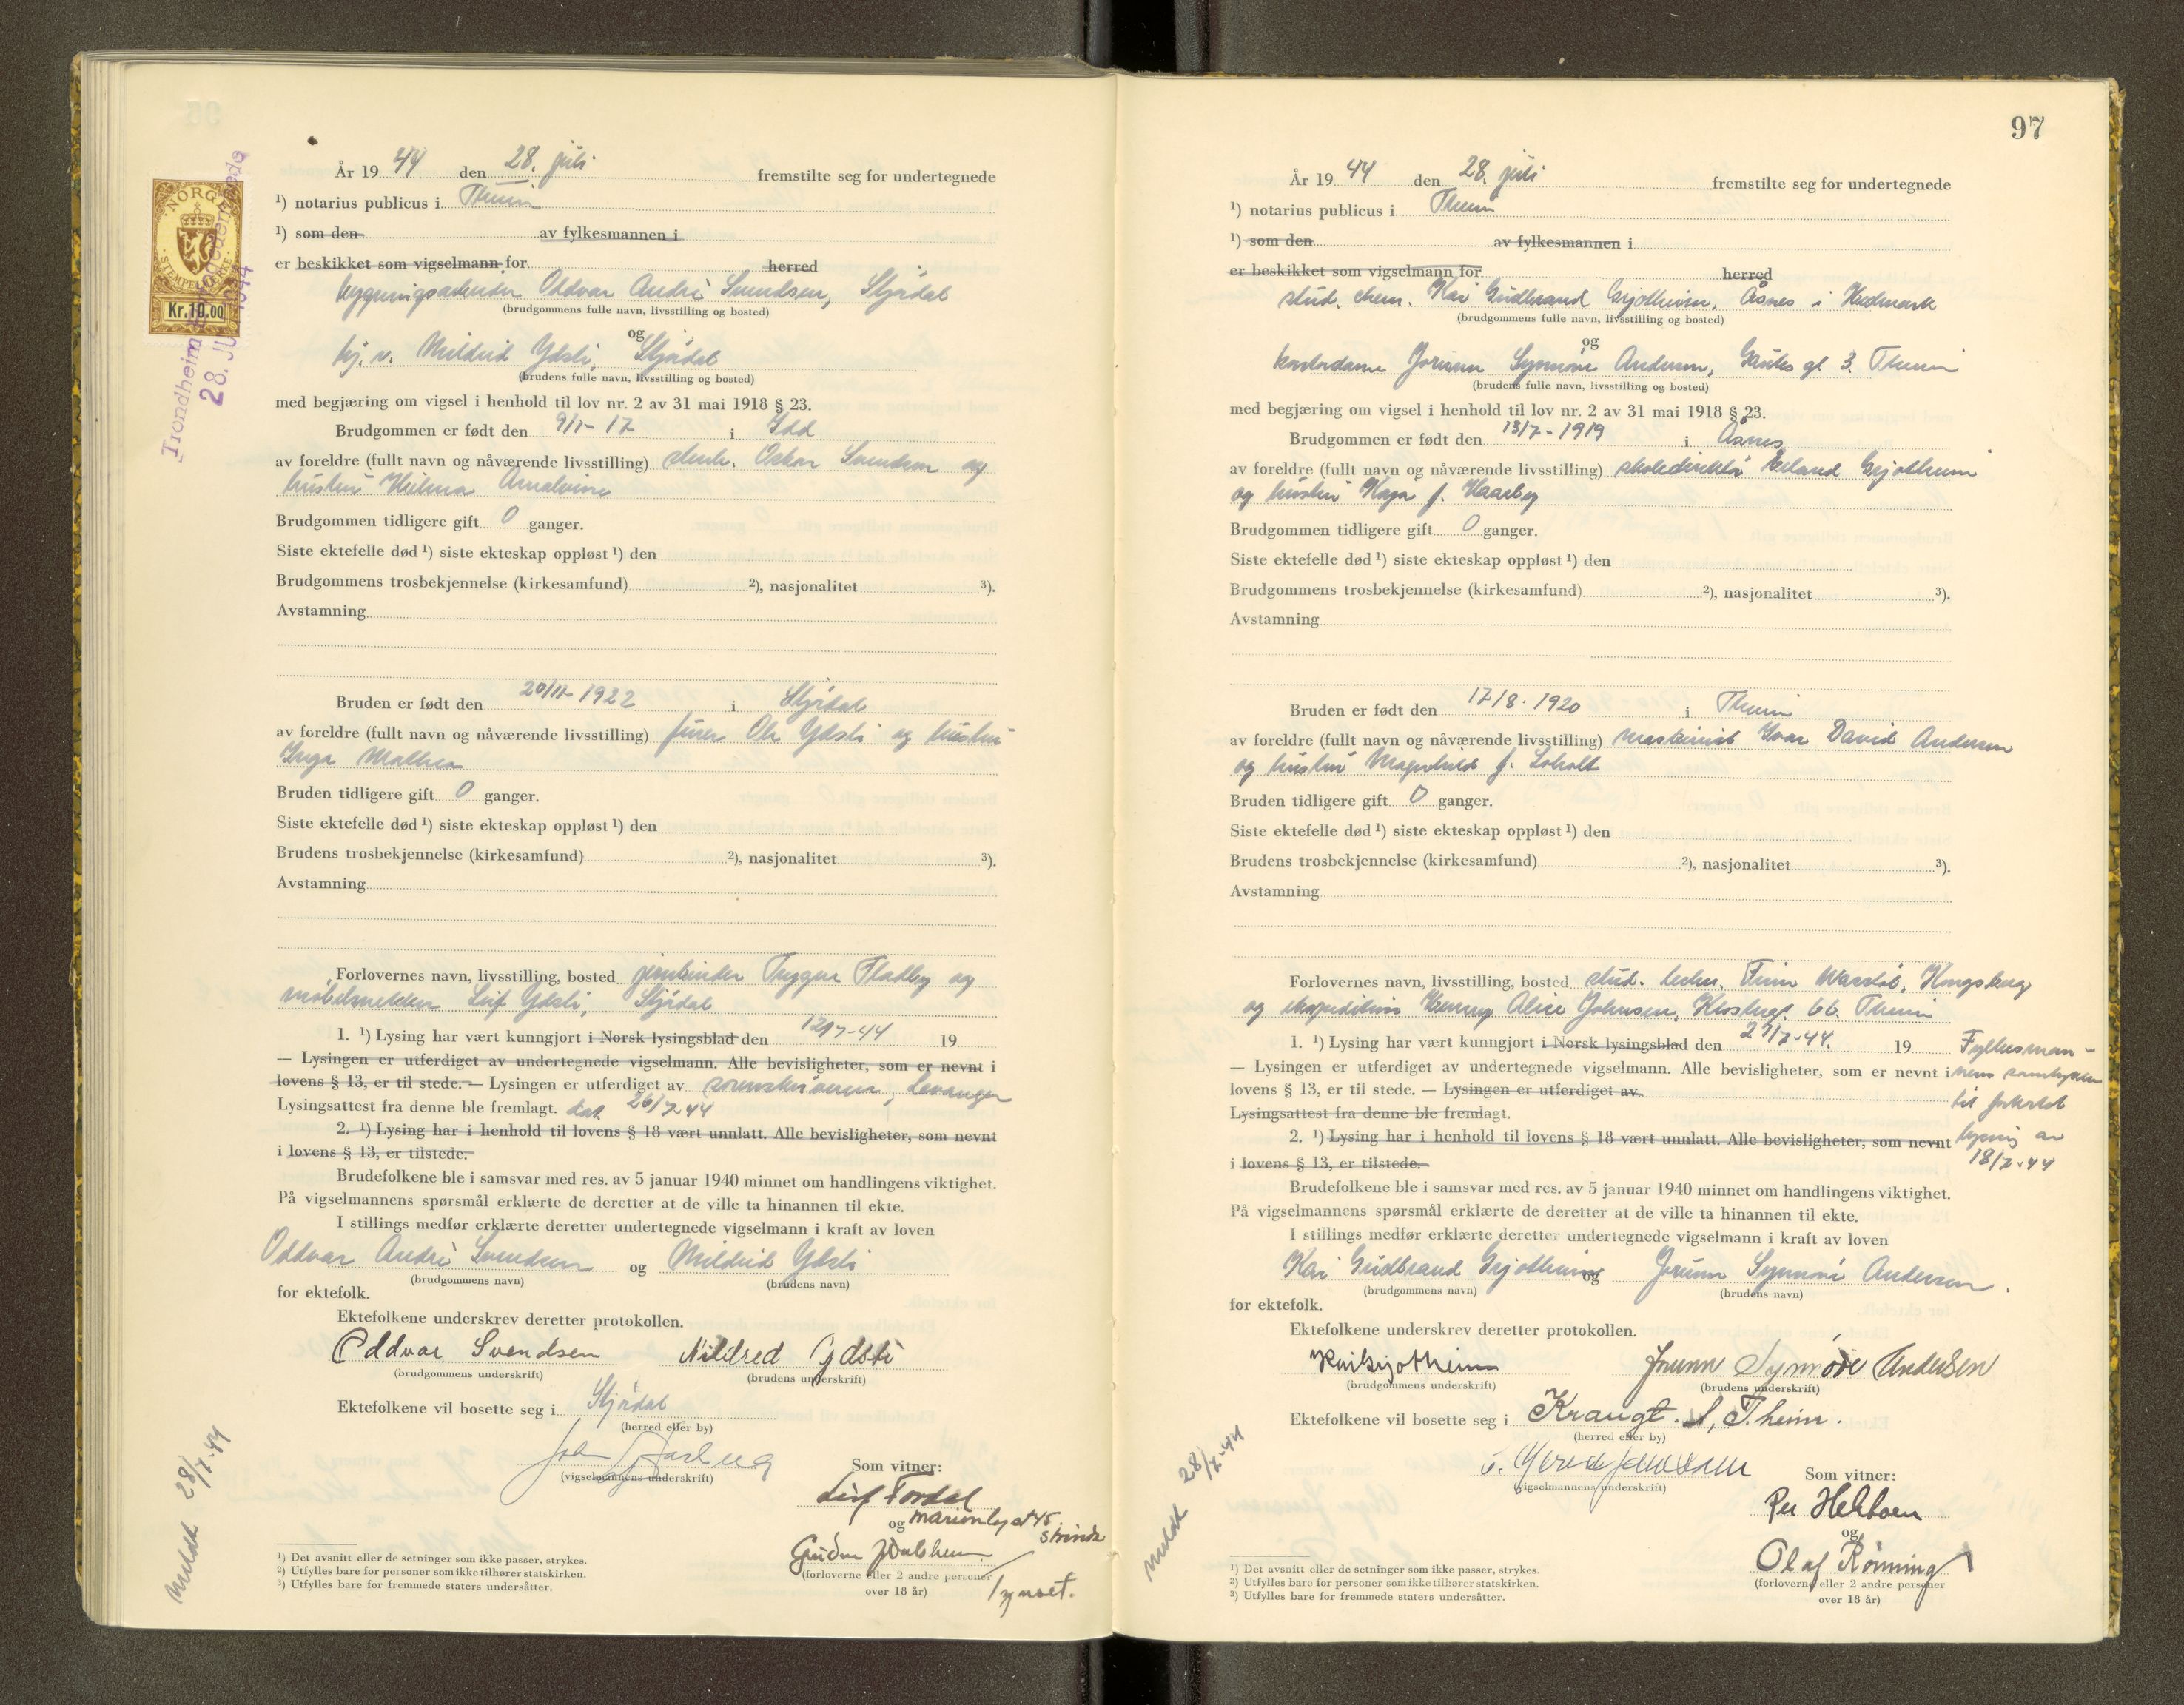 År 19 44 den 28. juli fremstilte seg for undertegnede
¹) notarius publicus i Theim
¹) som den av fylkesmannen i
er beskikket som vigselmann for herred
bygningsarbeider Oddvar Andrè Svendsen, Stjørdal
(brudgommens fulle navn, livsstilling og bosted)
og
hj. v. Mildrid Ydsti, Stjørdal
(brudens fulle navn, livsstilling og bosted)
med begjæring om vigsel i henhold til lov nr. 2 av 31 mai 1918 § 23.
Brudgommen er født den 9/1- 17 i Idd
av foreldre (fullt navn og nåværende livsstilling) Oskar Svendsen og
hustru Hilma
Brudgommen tidligere gift 0 ganger.
Siste ektefelle død ¹) siste ekteskap oppløst ¹) den
Brudgommens trosbekjennelse (kirkesamfund) ²), nasjonalitet ³).
Avstamning
Bruden er født den 1922 i Stjørdal
av foreldre (fullt navn og nåværende livsstilling) Ole Ydsti og hustru
Inga Mathea
Bruden tidligere gift 0 ganger.
Siste ektefelle død ¹) siste ekteskap oppløst ¹) den
Brudens trosbekjennelse (kirkesamfund) ²), nasjonalitet ³).
Avstamning
Forlovernes navn, livsstilling, bosted jernbinder Trygve Fladby og
møbelsnekker Leif Ydsti, Stjørdal
1. ¹) Lysing har vært kunngjort i Norsk lysingsblad den 12/7-44 19
— Lysingen er utferdiget av undertegnede vigselmann. Alle bevisligheter, som er nevnt i
lovens § 13, er til stede. — Lysingen er utferdiget av sorenskriveren, Levanger
Lysingsattest fra denne ble fremlagt. dat. 26/7-44
2. ¹) Lysing har i henhold til lovens § 18 vært unnlatt. Alle bevisligheter, som nevnt
i lovens § 13, er tilstede.
Brudefolkene ble i samsvar med res. av 5 januar 1940 minnet om handlingens viktighet.
På vigselmannens spørsmål erklærte de deretter at de ville ta hinannen til ekte.
I stillings medfør erklærte deretter undertegnede vigselmann i kraft av loven
Oddvar Andrè Svendsen og Mildrid Ydsti
(brudgommens navn) (brudens navn)
for ektefolk.
Ektefolkene underskrev deretter protokollen.
Oddvar Svendsen Mildred Ydsti
(brudgommens underskrift) (brudens underskrift)
Ektefolkene vil bosette seg i Stjørdal
(herred eller by)
(vigselmannens underskrift)
Som vitner:
Leif Fordal
og Marienlyst 45 Strinda
Gudrun
(forloverne eller 2 andre personer
over 18 år)
Tynset.
¹) Det avsnitt eller de setninger som ikke passer, strykes.
²) Utfylles bare for personer som ikke tilhører statskirken.
³) Utfylles bare for fremmede staters undersåtter.
meldt 28/7-44
NORGE
STEMPELMERKE
Kr. 10.00
Trondheim
28. JUL 1944
97
År 19 44 den 28. juli fremstilte seg for undertegnede
¹) notarius publicus i Theim
¹) som den av fylkesmannen i
er beskikket som vigselmann for herred
stud. chem. Kai Gudbrand Grjotheim, Åsnes i Hedmark
(brudgommens fulle navn, livsstilling og bosted)
og
kontordame Jorunn Synnøve Andersen, Gautes gt 3. Theim
(brudens fulle navn, livsstilling og bosted)
med begjæring om vigsel i henhold til lov nr. 2 av 31 mai 1918 § 23.
Brudgommen er født den 13/7-1919 i Åsnes
av foreldre (fullt navn og nåværende livsstilling) skoledirektør Grjotheim
og hustru Kaja f. Haarbey
Brudgommen tidligere gift 0 ganger.
Siste ektefelle død ¹) siste ekteskap oppløst ¹) den
Brudgommens trosbekjennelse (kirkesamfund) ²), nasjonalitet ³).
Avstamning
Bruden er født den 17/8. 1920 i Theim
av foreldre (fullt navn og nåværende livsstilling) maskinist Ivar David Andersen
og hustru Magnhild f. Loholt
Bruden tidligere gift 0 ganger.
Siste ektefelle død ¹) siste ekteskap oppløst ¹) den
Brudens trosbekjennelse (kirkesamfund) ²), nasjonalitet ³).
Avstamning
Forlovernes navn, livsstilling, bosted stud. techn. Finn Kongsberg
og Alice Johnsen, 66. Theim
1. ¹) Lysing har vært kunngjort i Norsk lysingsblad den 27/7-44. 19
— Lysingen er utferdiget av undertegnede vigselmann. Alle bevisligheter, som er nevnt i
lovens § 13, er til stede. — Lysingen er utferdiget av
Lysingsattest fra denne ble fremlagt.
2. ¹) Lysing har i henhold til lovens § 18 vært unnlatt. Alle bevisligheter, som nevnt
i lovens § 13, er tilstede.
Fylkesman-
nens samtykke
til forkortet
lysing av
18/7-44
Brudefolkene ble i samsvar med res. av 5 januar 1940 minnet om handlingens viktighet.
På vigselmannens spørsmål erklærte de deretter at de ville ta hinannen til ekte.
I stillings medfør erklærte deretter undertegnede vigselmann i kraft av loven
Kai Gudbrand Grjotheim og Jorunn Synnøve Andersen.
(brudgommens navn) (brudens navn)
for ektefolk.
Ektefolkene underskrev deretter protokollen.
Kai Grjotheim Jorunn Synnøve Andersen
(brudgommens underskrift) (brudens underskrift)
Ektefolkene vil bosette seg i Krangt. 1, T.heim.
(herred eller by)
(vigselmannens underskrift)
Som vitner:
Per
og
Olaf Rønning
(forloverne eller 2 andre personer
over 18 år)
¹) Det avsnitt eller de setninger som ikke passer, strykes.
²) Utfylles bare for personer som ikke tilhører statskirken.
³) Utfylles bare for fremmede staters undersåtter.
meldt 28/7-44